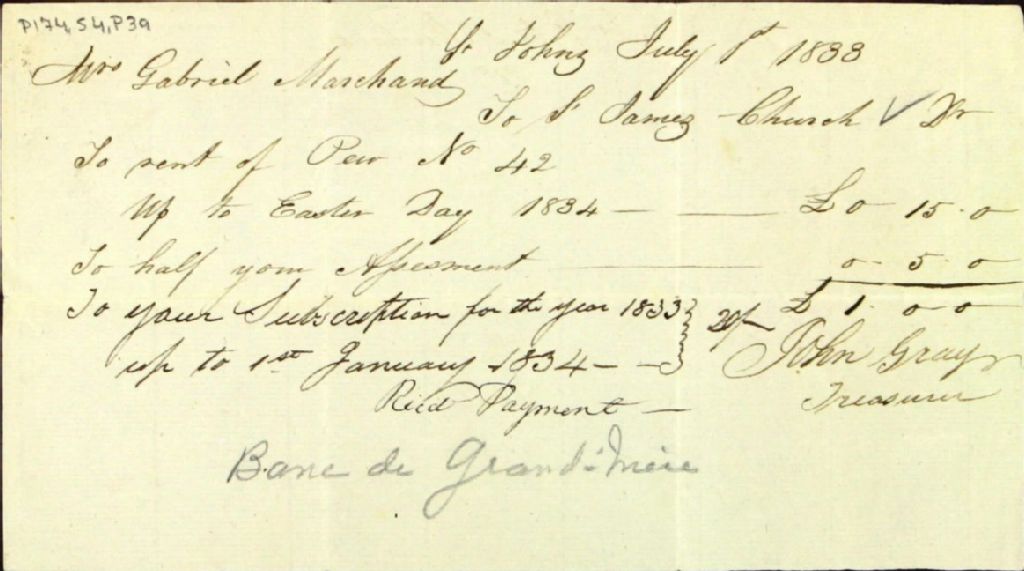 P174,S4,P39
St Johns July 1st 1833
Mrs Gabriel Marchand
To St James Church V Dr
To rent of Pew No 42
Up to Easter Day 1834 — — £ 0 15 0
To half your Assessment — 0 5 0
£ 1 0 0
To your Subscription for the year 1833 } 20/-
up to 1st January 1834 — —
John Gray
Treasurer
Recd Payment —
Banc de Grand-Mère